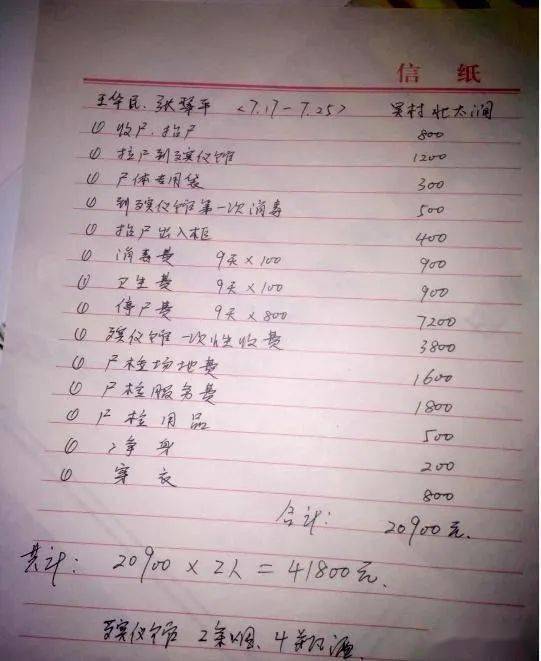 信 纸
王华民、张琴平 <7.17-7.25> 吴村 壮太涧
① 收尸.抬尸 800
① 拉尸到殡仪馆 1200
① 尸体专用袋 300
① 到殡仪馆第一次消毒 500
① 抬尸出入柜 400
① 消毒费 9天×100 900
① 卫生费 9天×100 900
① 停尸费 9天×800 7200
① 殡仪馆一次性收费 3800
① 尸检场地费 1600
① 尸检服务费 1800
① 尸检用品 500
① 净身 200
① 穿衣 800
合计: 20900元.
共计: 20900×2人=41800元.
殡仪馆 2条烟、4瓶酒